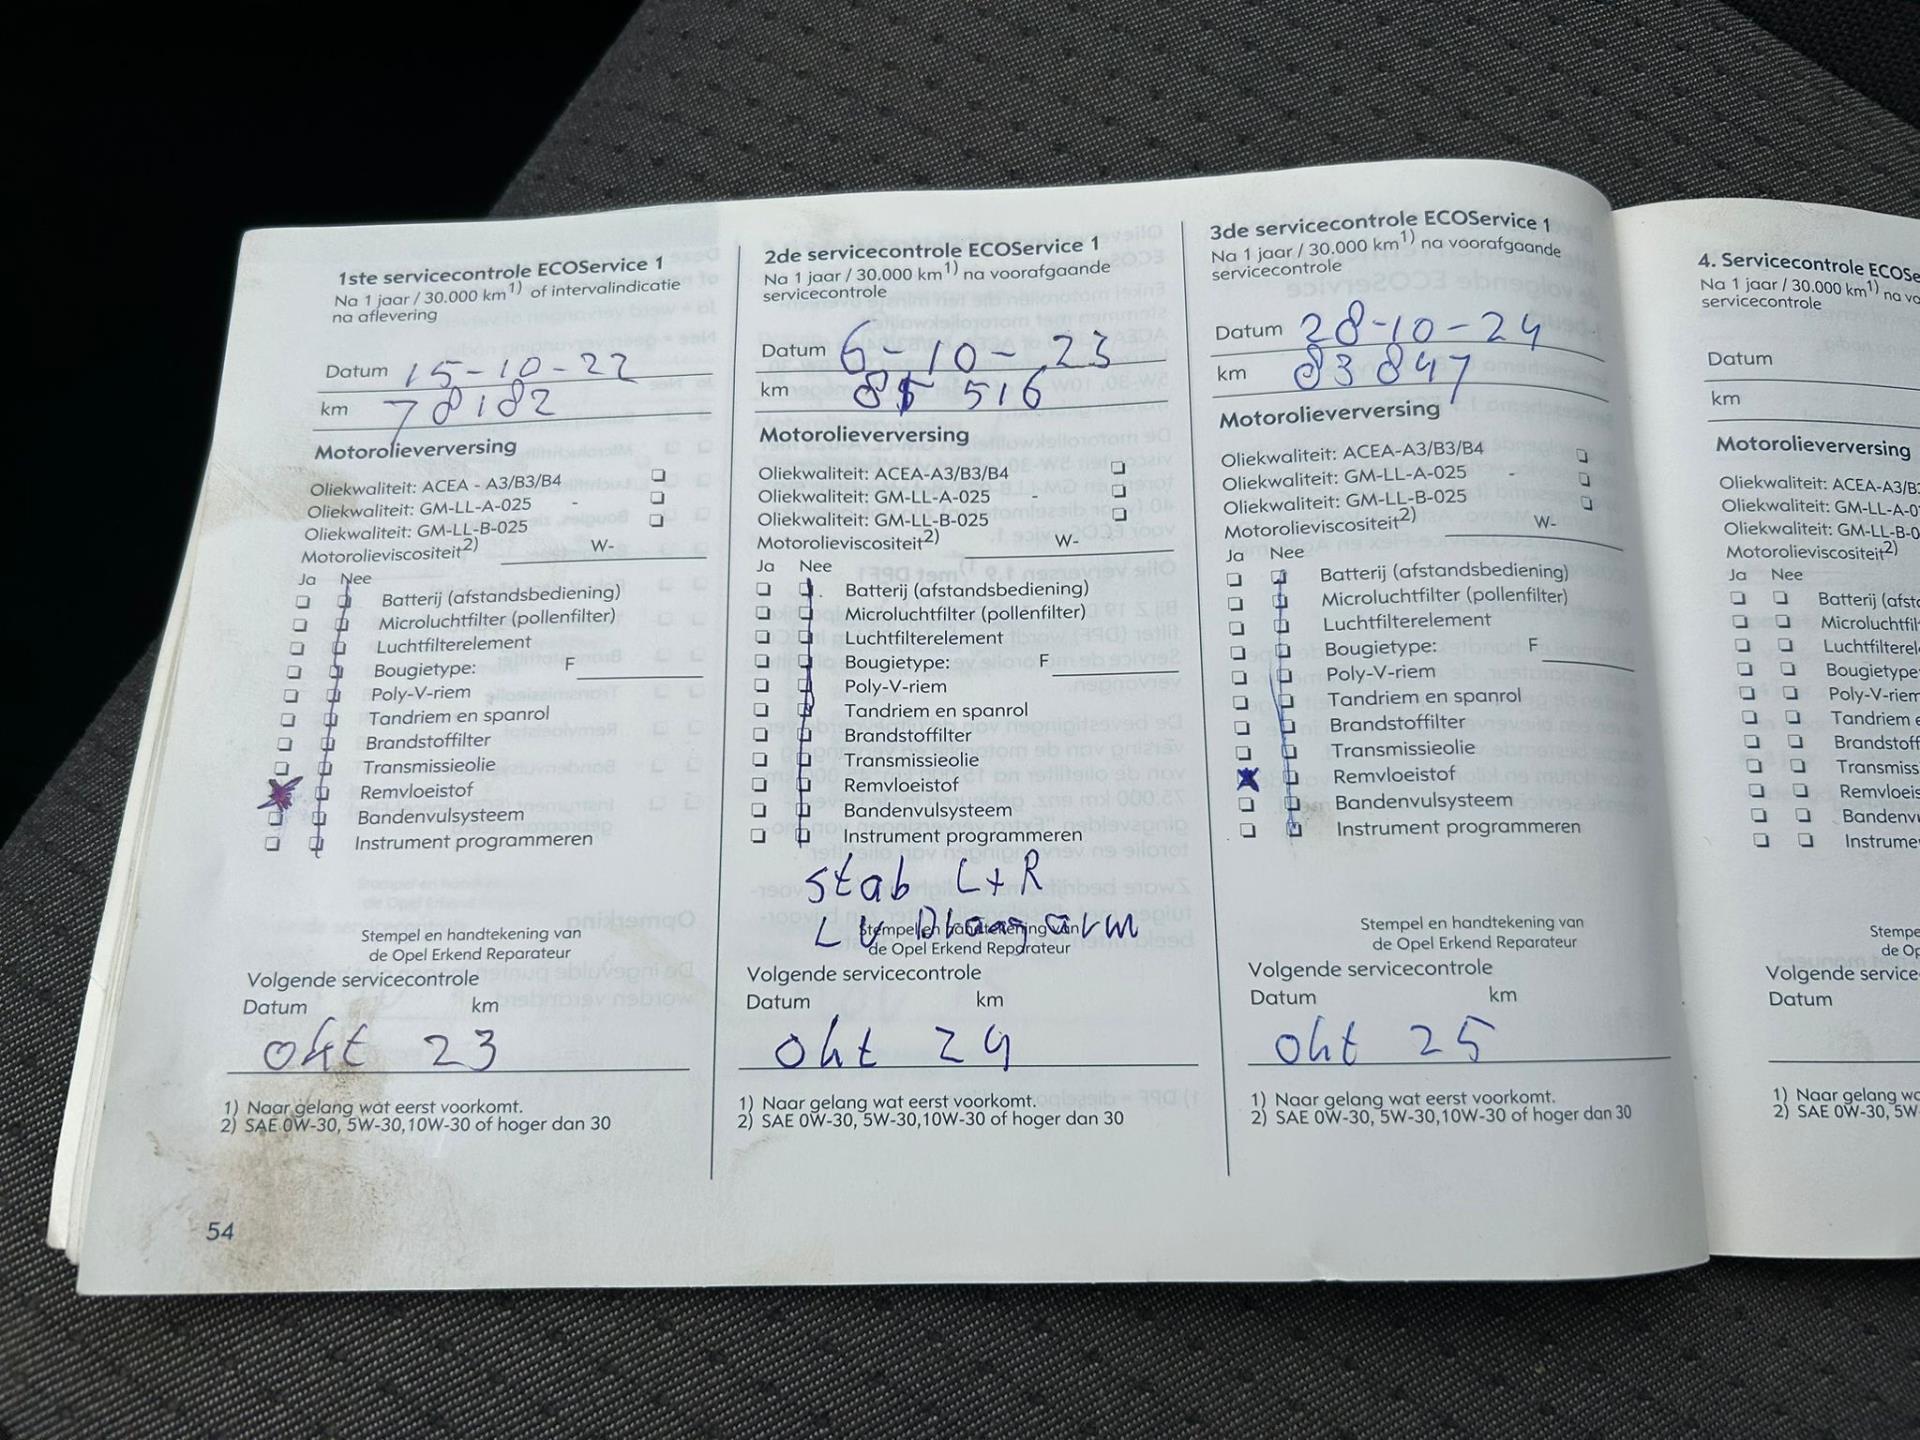 1ste servicecontrole ECOService 1
Na 1 jaar / 30.000 km1) of intervalindicatie
na aflevering
Datum 15-10-22
km 78182
Motorolieverversing
Oliekwaliteit: ACEA - A3/B3/B4
Oliekwaliteit: GM-LL-A-025 -
Oliekwaliteit: GM-LL-B-025
Motorolieviscositeit2) W-
Ja Nee
Batterij (afstandsbediening)
Microluchtfilter (pollenfilter)
Luchtfilterelement
Bougietype: F
Poly-V-riem
Tandriem en spanrol
Brandstoffilter
Transmissieolie
Remvloeistof
Bandenvulsysteem
Instrument programmeren
Stempel en handtekening van
de Opel Erkend Reparateur
Volgende servicecontrole
Datum km
okt 23
1) Naar gelang wat eerst voorkomt.
2) SAE 0W-30, 5W-30,10W-30 of hoger dan 30
54
2de servicecontrole ECOService 1
Na 1 jaar / 30.000 km1) na voorafgaande
servicecontrole
Datum 6-10-23
km 85 516
Motorolieverversing
Oliekwaliteit: ACEA-A3/B3/B4
Oliekwaliteit: GM-LL-A-025 -
Oliekwaliteit: GM-LL-B-025
Motorolieviscositeit2) W-
Ja Nee
Batterij (afstandsbediening)
Microluchtfilter (pollenfilter)
Luchtfilterelement
Bougietype: F
Poly-V-riem
Tandriem en spanrol
Brandstoffilter
Transmissieolie
Remvloeistof
Bandenvulsysteem
Instrument programmeren
stab L+R
LV Draagarm
Stempel en handtekening van
de Opel Erkend Reparateur
Volgende servicecontrole
Datum km
okt 24
1) Naar gelang wat eerst voorkomt.
2) SAE 0W-30, 5W-30,10W-30 of hoger dan 30
3de servicecontrole ECOService 1
Na 1 jaar / 30.000 km1) na voorafgaande
servicecontrole
Datum 28-10-24
km 83 847
Motorolieverversing
Oliekwaliteit: ACEA-A3/B3/B4
Oliekwaliteit: GM-LL-A-025 -
Oliekwaliteit: GM-LL-B-025
Motorolieviscositeit2) W-
Ja Nee
Batterij (afstandsbediening)
Microluchtfilter (pollenfilter)
Luchtfilterelement
Bougietype: F
Poly-V-riem
Tandriem en spanrol
Brandstoffilter
Transmissieolie
Remvloeistof
Bandenvulsysteem
Instrument programmeren
Stempel en handtekening van
de Opel Erkend Reparateur
Volgende servicecontrole
Datum km
okt 25
1) Naar gelang wat eerst voorkomt.
2) SAE 0W-30, 5W-30,10W-30 of hoger dan 30
4. Servicecontrole ECOSe
Na 1 jaar / 30.000 km1) na vo
servicecontrole
Datum
km
Motorolieverversing
Oliekwaliteit: ACEA-A3/B3
Oliekwaliteit: GM-LL-A-0
Oliekwaliteit: GM-LL-B-0
Motorolieviscositeit2)
Ja Nee
Batterij (afst
Microluchtfil
Luchtfilterel
Bougietype
Poly-V-riem
Tandriem e
Brandstoff
Transmiss
Remvloeis
Bandenv
Instrume
Stempe
de Op
Volgende service
Datum
1) Naar gelang wa
2) SAE 0W-30, 5W